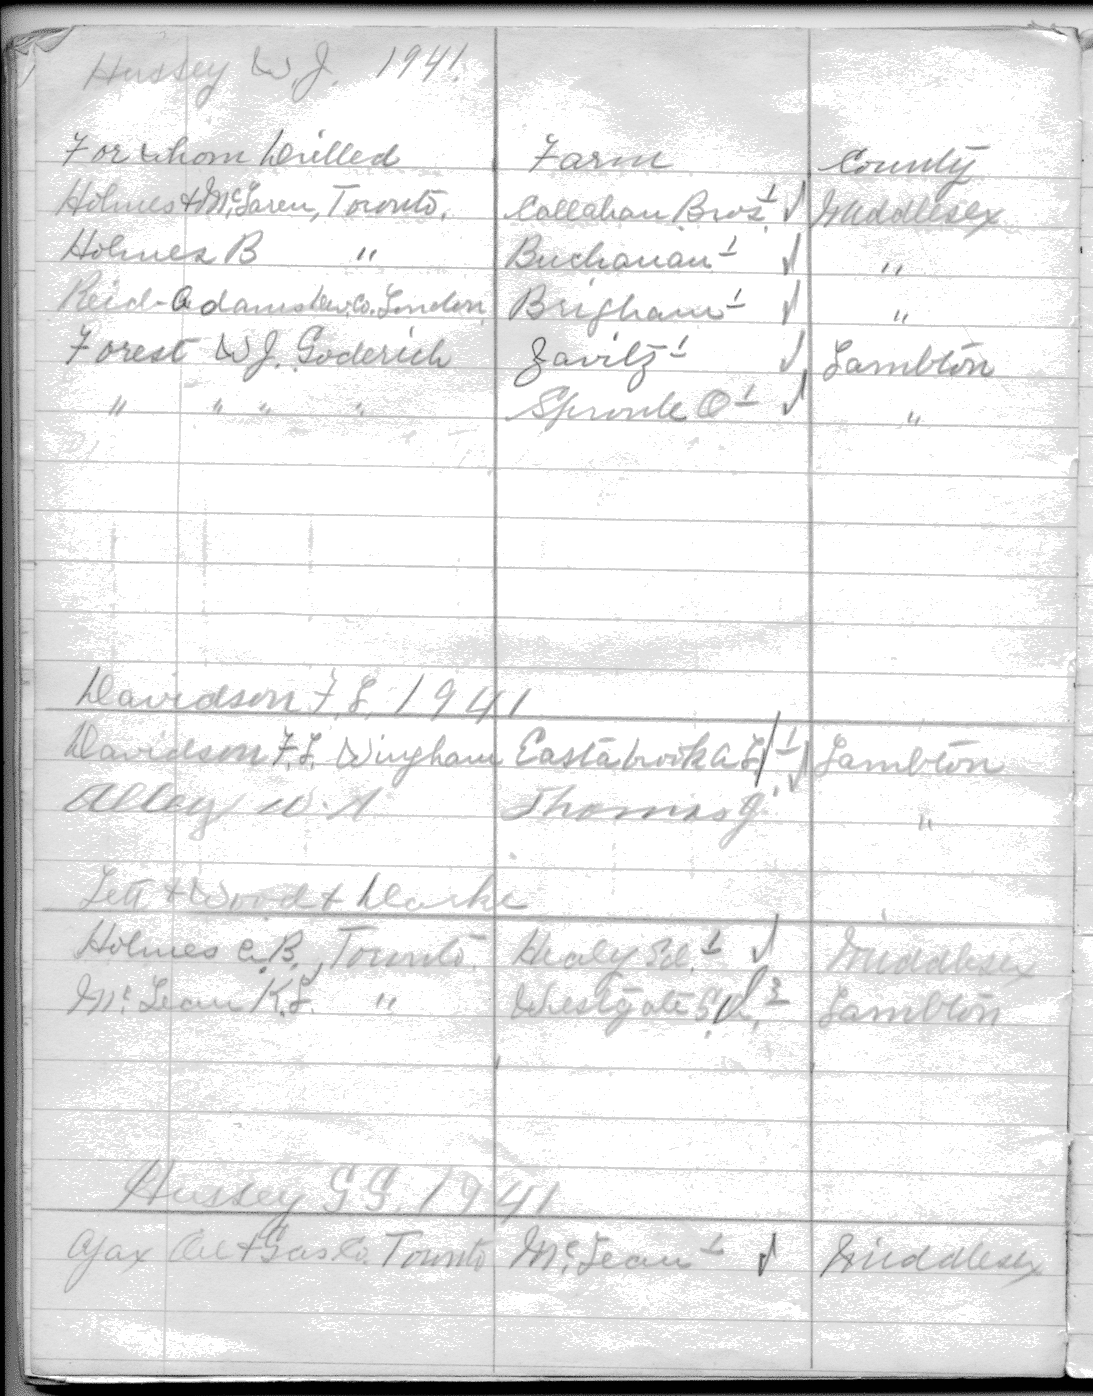 Hussey W.J. 1941.
For whom Drilled Farm County
Holmes & McLaren, Toronto. Callahan Bros. 1 ✓ Middlesex
Holmes B " Buchanan 1 ✓ "
Reid-Adams Dev. Co. London Brigham 1 ✓ "
Forest W.J. Goderich Zavitz 1 ✓ Lambton
" " " " Sproule O 1 ✓ "
Davidson F.L. 1941
Davidson F.L. Wingham Eastabrook A L 1 ✓ Lambton
Alley W. A Thomas J. "
Lett & Wood &
Holmes C.B., Toronto. Healy Sd. 1 ✓ Middlesex
McLean K.L. " Westgate 2 Lambton
Hussey G G. 1941
Ajax Oil & Gas Co. Toronto McLean 1 ✓ Middlesex